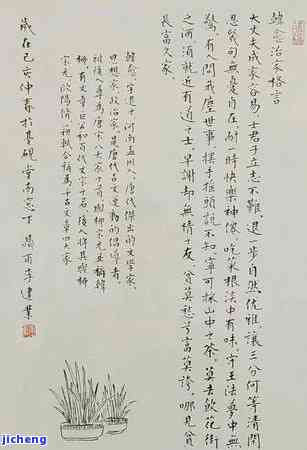 韓愈治家格言
大丈夫成家容易士君子立志不難退一步自然優雅讓三分何等清閑
忍幾句無憂自在耐一時快樂神仙吃菜根淡中有味守王法夢中無
驚有人問我塵世事擺手摇頭說不知寧可採山中之茶莫去飲花街
之酒須就近有道之士早謝却無情之友貧莫愁兮富莫誇哪見貧
長富久家
韓愈字退之河南孟州人唐代傑出的文學家
思想家政治家是唐代古文運動的倡導者
被後人尊為唐宋八大家之首與柳宗元並稱韓
柳有文章巨公和百代文宗之名後人將其與柳
宗元歐陽脩蘇軾合稱為古文章四大家
歲在己亥仲春於
硯堂南窗下
李建業
jicheng